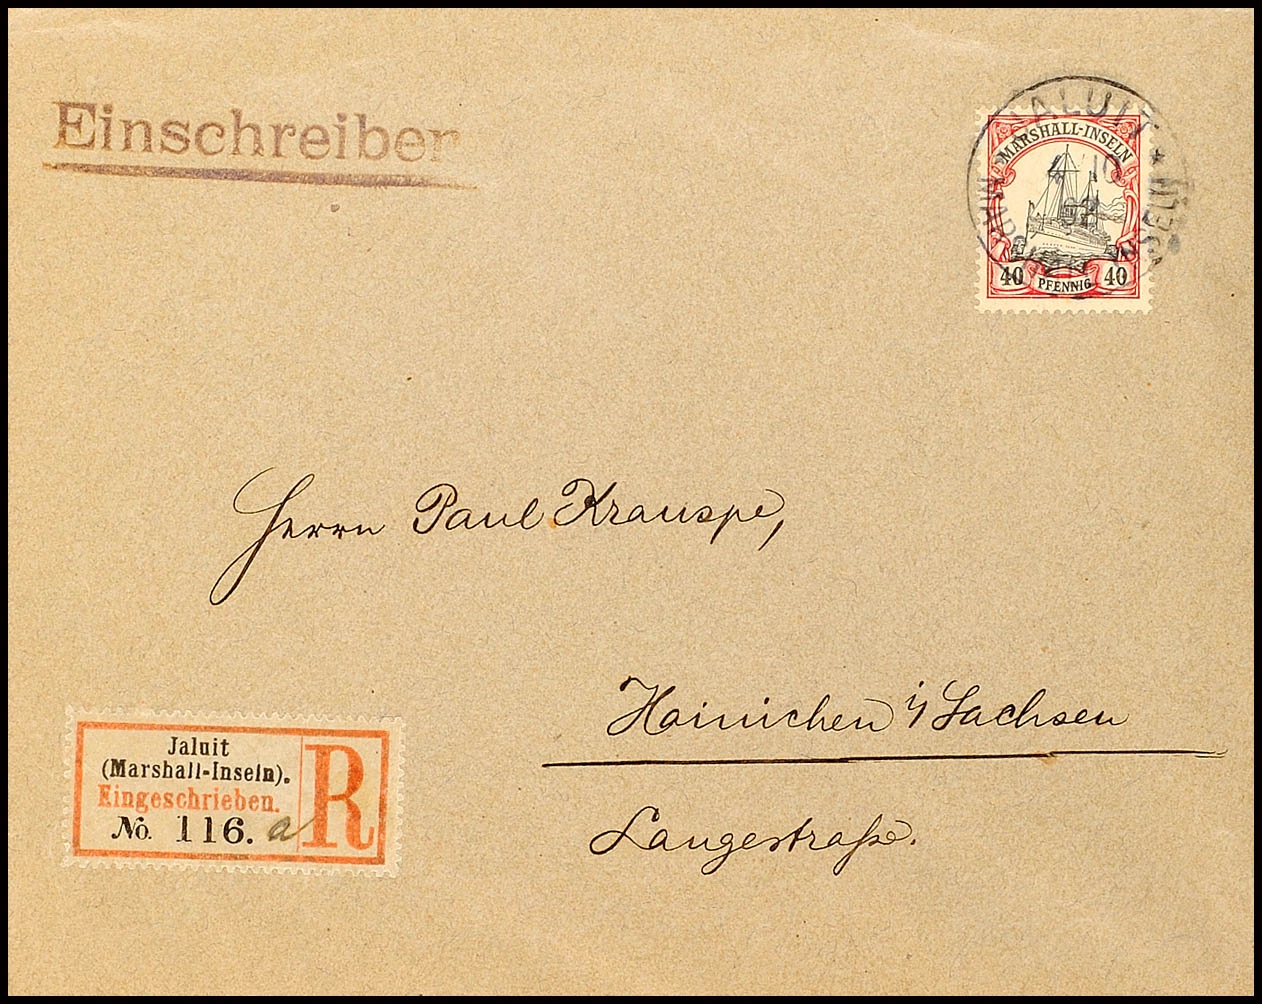 Einschreiben
JALUIT
MARSHALL-INSELN
MARSHALL-INSELN
40 PFENNIG 40
Herrn Paul Krauspe,
Hainichen i/Sachsen
Langestraße.
Jaluit
(Marshall-Inseln).
Eingeschrieben.
No. 116. a
R